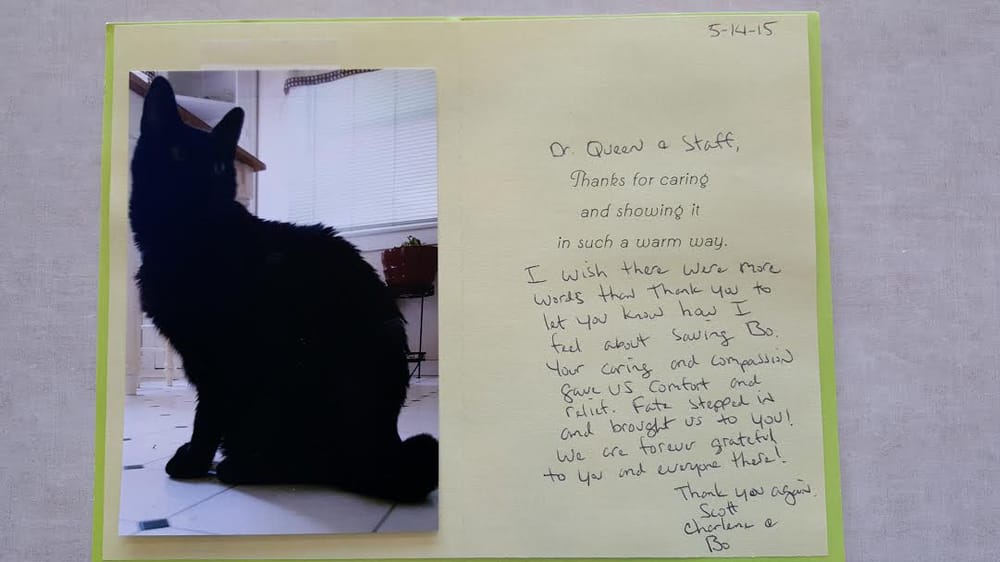 5-14-15
Dr. Queen & Staff,
Thanks for caring
and showing it
in such a warm way.
I wish there were more
words than Thank you to
let you know how I
feel about saving Bo.
Your caring and compassion
gave us comfort and
relief. Fate stepped in
and brought us to you!
We are forever grateful
to you and everyone there!
Thank you again.
Scott
Charlene &
Bo